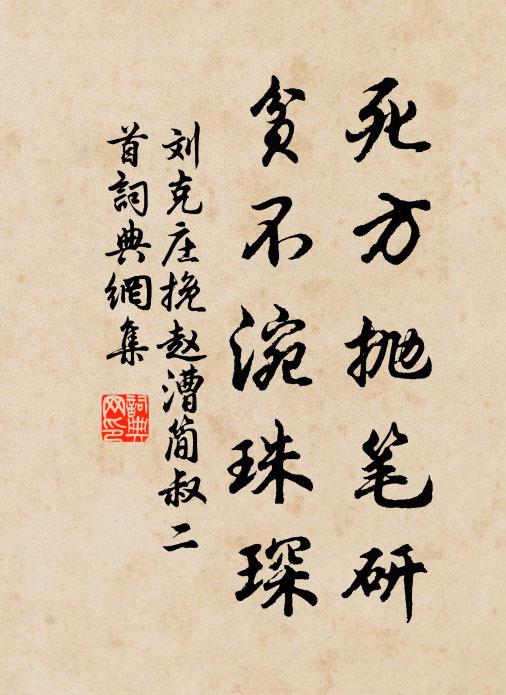 死方抛笔研
贫不涴珠琛
刘克庄挽赵漕简叔二
首詞典網集
詞典
网印